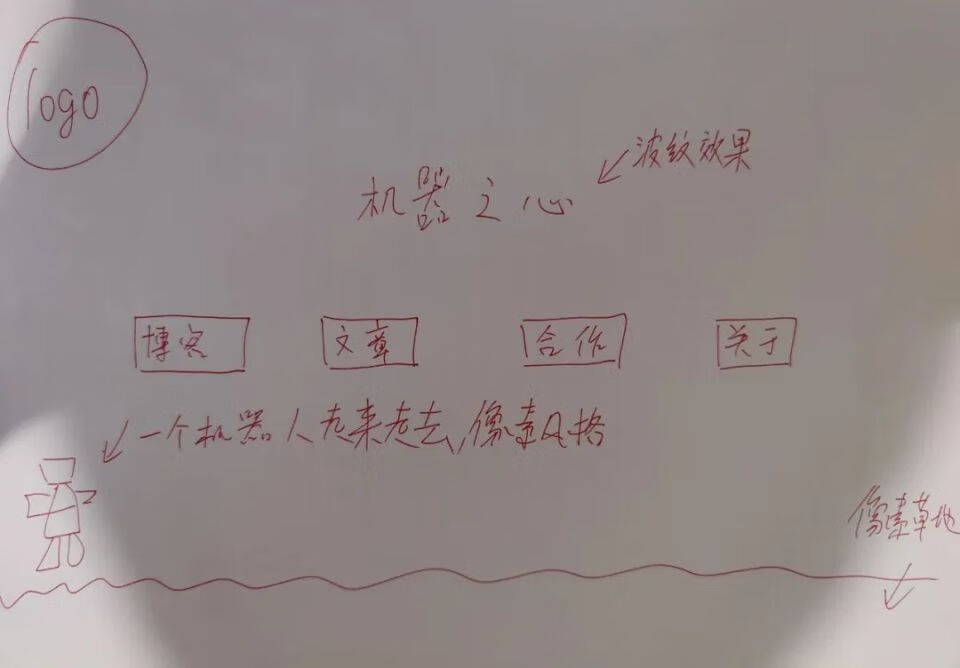 logo
波纹效果
机器之心
博客 文章 合作 关于
一个机器人走来走去,像素风格
像素草地